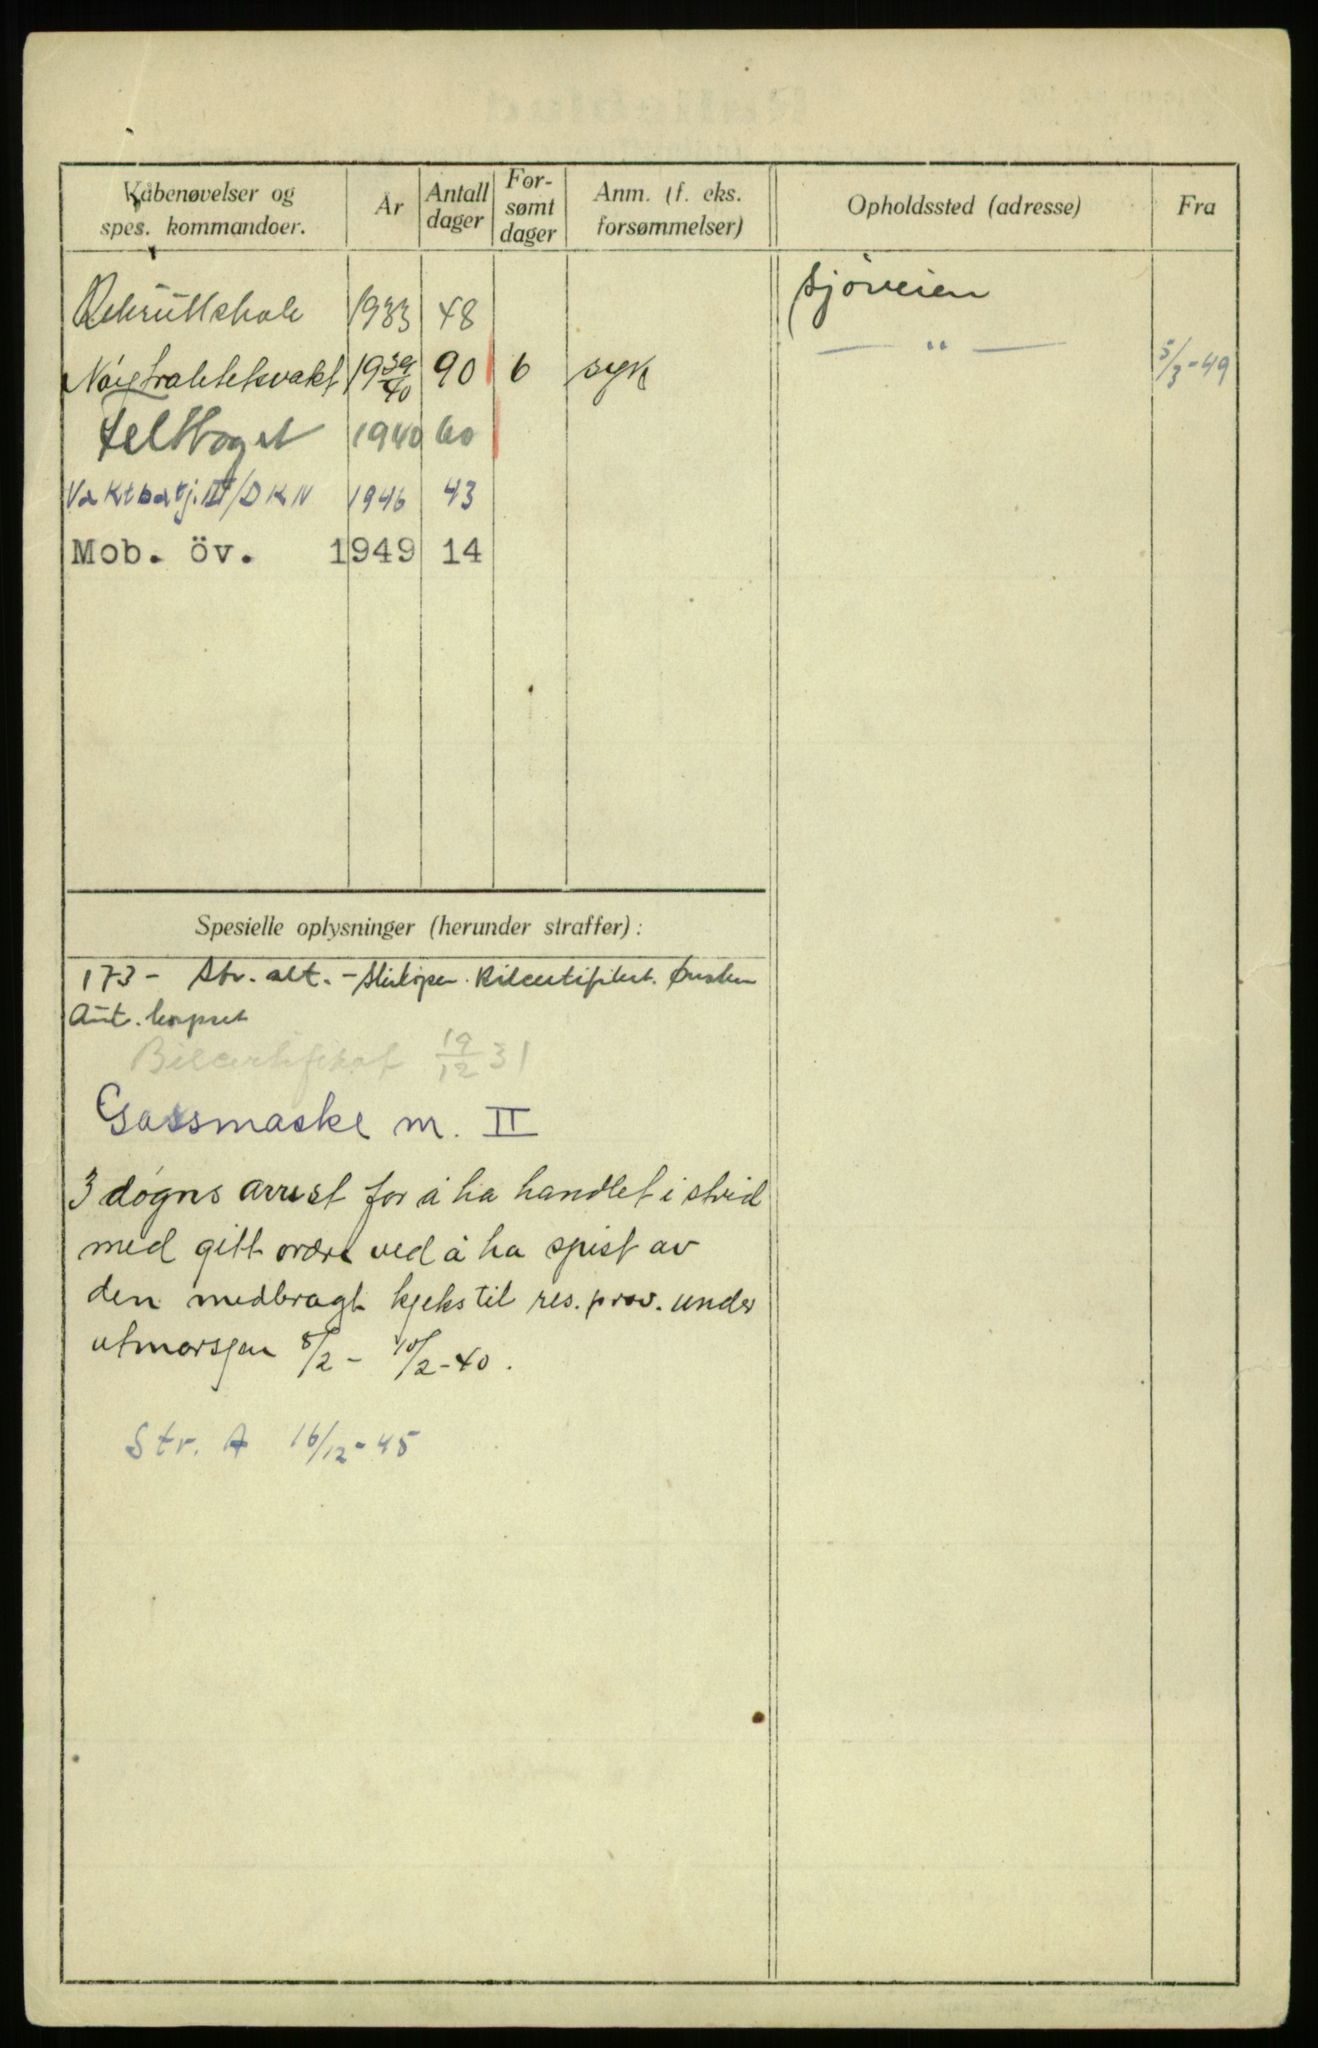 Våbenøvelser og spes. kommandoer. År Antall dager For-sømt dager Anm. (f. eks. forsømmelser) Opholdssted (adresse) Fra
Rekruttskole 1933 48 Sjøveien
Nøytralitetsvakt 19 39/40 90 6 syk — " — 5/3-49
Felttoget 1940 60
Vaktbatj. III/DKN 1946 43
Mob. öv. 1949 14
Spesielle oplysninger (herunder straffer):
173 - Str. alt. - Skiløper. Bilcertifikat. Ønsker
Aut. korpset
Bilcertifikat 19/12 31
Gassmaske m. II
3 døgns arrest for å ha handlet i strid
med gitt ordre ved å ha spist av
den medbragt kjeks til res. prov. under
utmarsjen 8/2 - 10/2-40.
Str. A 16/12-45